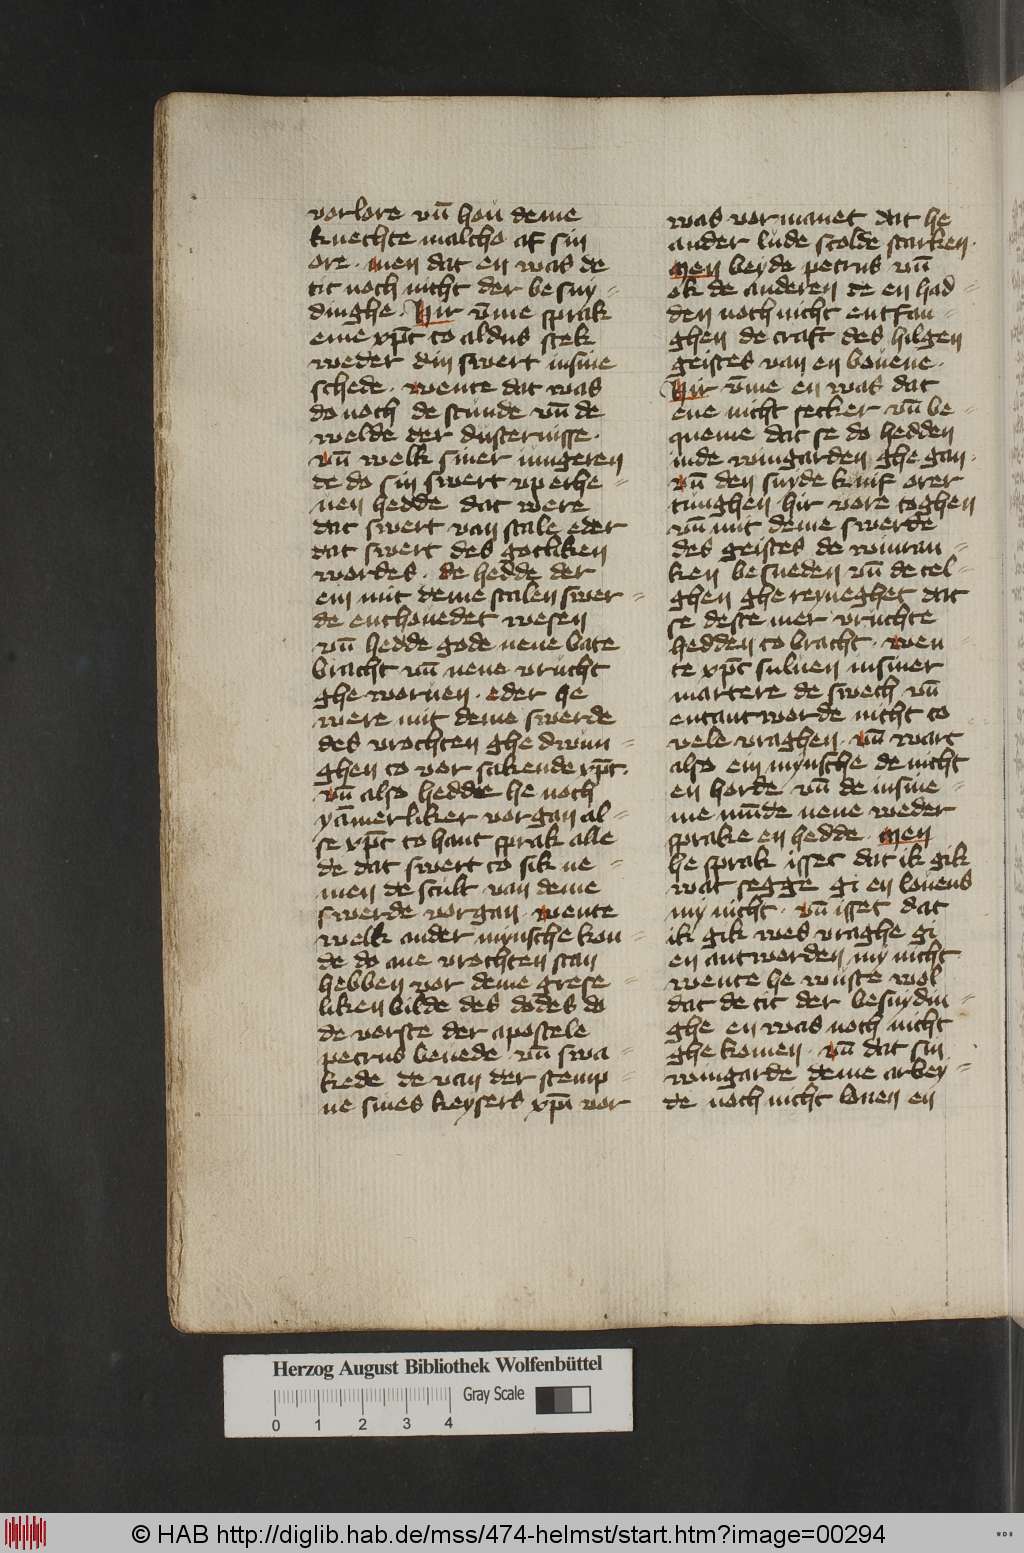 vorlore vn̄ hou deme
knechte malcho af sin
ore · men dat en was de
tit noch nicht der besny=
dinghe · Hir vm̄e sprak
eme xp̄c to aldus stek
weder din swert in sine
schede · wente dat was
do noch de stunde vn̄ de
welde der dusternisse ·
vn̄ welk siner iungeren
de do sin swert vp erhe=
uen hedde dat were
dat swert van stale eder
dat swert des gotliken
wordes · de hedde der
ein mit deme stalen swer=
de enthouedet wesen
vn̄ hedde gode nene bate
bracht vn̄ nene vrucht
ghe woruen · eder he
were mit deme swerde
des vrochten ghe dwun=
ghen to vor sakende xp̄c ·
vn̄ also hedde he noch
yām̄erliker vorgan al=
se xp̄c to hant sprak alle
de dat swert to sik ne=
men de scult van deme
swerde vorgan · wente
welk ander mynsche kon=
de do ane vrochten stan
hebben vor deme grese=
liken bilde des dodes do
de vorste der apostele
petrus beuede vn̄ swa=
kede de van der stemp=
ne sines keysers xp̄i vor
was vormanet dat he
ander lude scolde starken ·
men beyde petrus vn̄
ok de anderen de en had=
den noch nicht entfan=
ghen de craft des hilgen
geistes van en bouene ·
Hir vm̄e en was dat
ene nicht secker vn̄ be=
queme dat se do hedden
in de wingarden ghe gan ·
vn̄ den snyde knif orer
tunghen hir vore toghen
vn̄ mit deme swerde
des geistes de winran=
ken besneden vn̄ de tel=
ghen ghe reyneghet dat
se deste mer vruchte
hedden to bracht · wen=
te xp̄c suluen in siner
martere de swech vn̄
entantworde nicht to
vele vraghen · vn̄ wart
also ein mynsche de nicht
en horde vn̄ de in sine=
me mūde nene weder
sprake en hedde · men
he sprak isset dat ik gik
wat segge gi en louens
my nicht · vn̄ isset dat
ik gik wes vraghe gi
en antworden my nicht
wente he wuste wol
dat de tit der besnydin=
ghe en was noch nicht
ghe komen · vn̄ dat sin
wingarde deme arbey=
de noch nicht lonen en
Herzog August Bibliothek Wolfenbüttel
Gray Scale
0 1 2 3 4
© HAB http://diglib.hab.de/mss/474-helmst/start.htm?image=00294